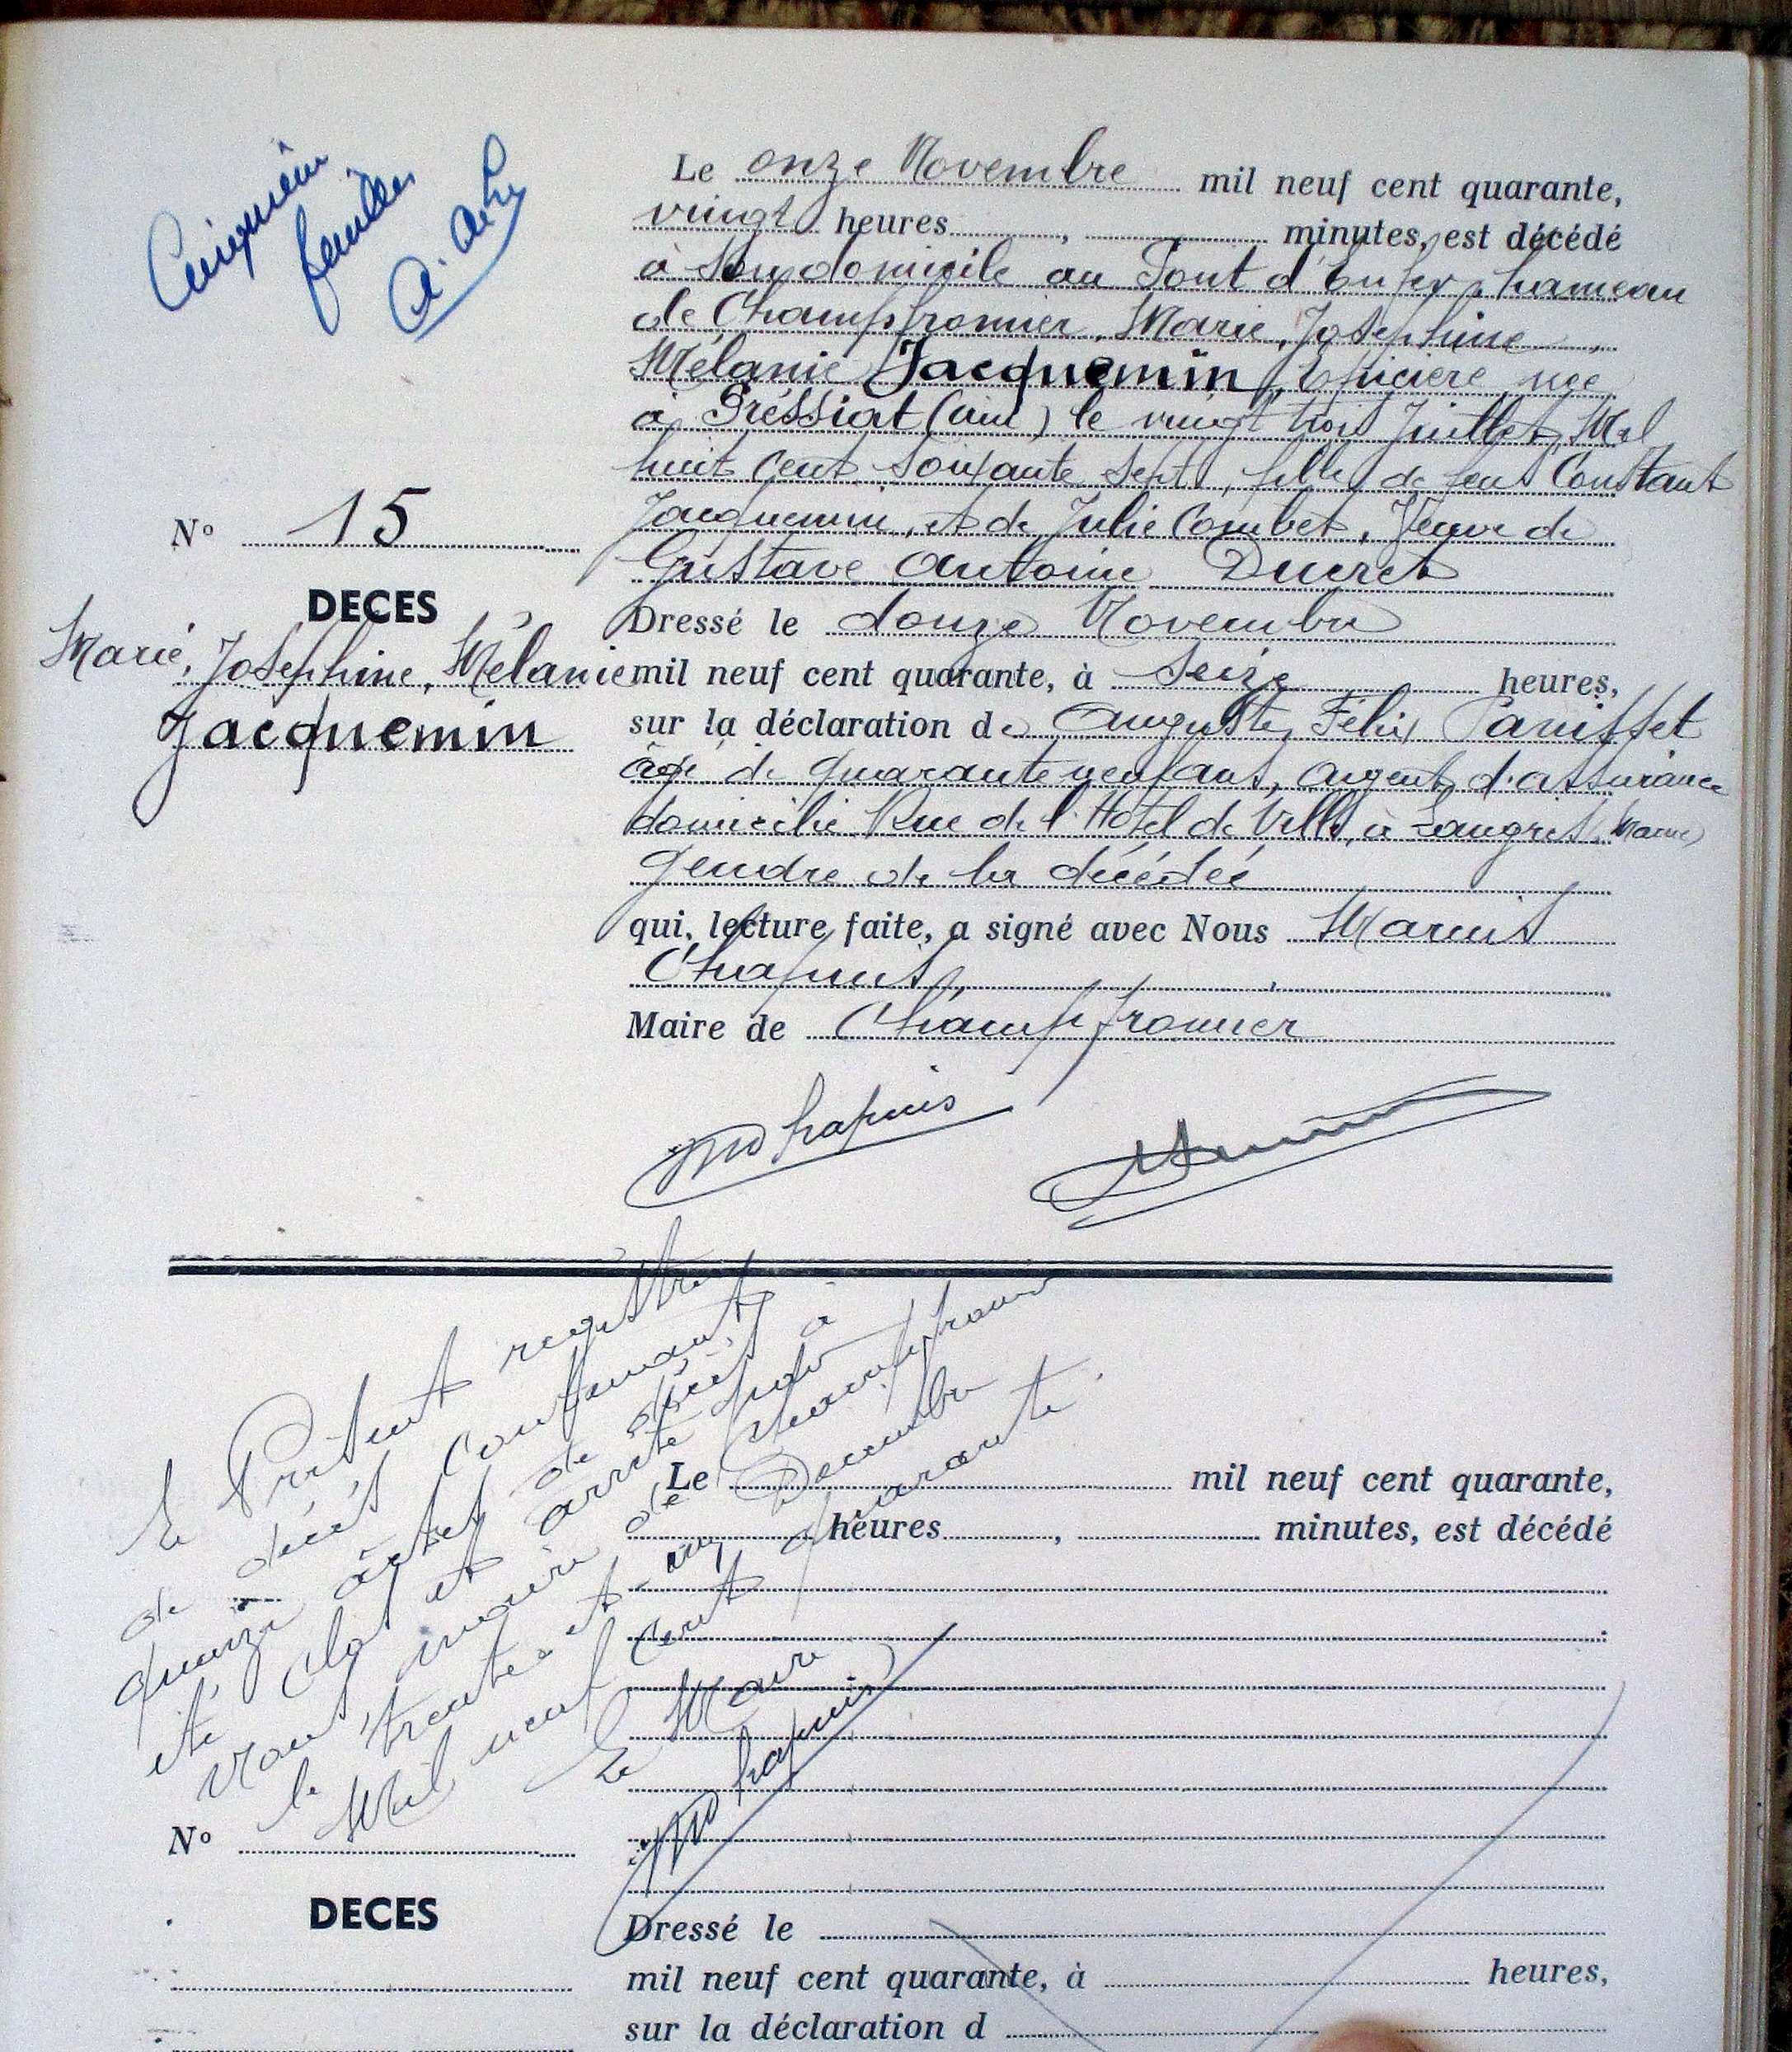 Cinquième
feuillet
Le onze Novembre mil neuf cent quarante,
vingt heures, minutes, est décédé
à Son domicile au Pont d'Enfer, hameau
de Champfromier, Marie, Josephine,
Mélanie Jacquemin, Epicière née
à Préssiat (ain) le vingt trois Juillet Mil
huit cent soixante sept, fille de feu Constant
Jacquemin, et de Julie Combet, Veuve de
Gustave Antoine Ducret
Nº 15
DECES
Marie, Josephine, Mélanie
Jacquemin
Dressé le douze Novembre
mil neuf cent quarante, à Seize heures,
sur la déclaration de Auguste, Félix Paniffet
âgé de quarante neuf ans, agent d'assurance
domicilié Rue de l'Hôtel de Ville, à Langres Marne)
gendre de la décédée
qui, lecture faite, a signé avec Nous Marius
Chapuis,
Maire de Champfromier
Chapuis
Le Présent registre
de décès Contenant
quinze actes de décès à
été clos et arrêté par
Nous, maire de Champfromier
le trente et un Décembre
Mil neuf cent quarante.
Le Maire
Chapuis
Le mil neuf cent quarante,
heures, minutes, est décédé
Nº
DECES
Dressé le
mil neuf cent quarante, à heures,
sur la déclaration d